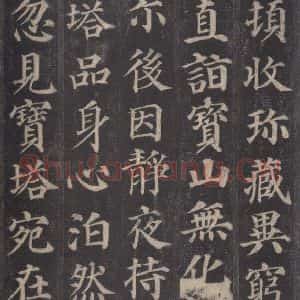 頓收珎藏異窮
直詣寶山無化
尒後因靜夜持
塔品身心泊然
忽見寶塔宛在
Shufawang.CN